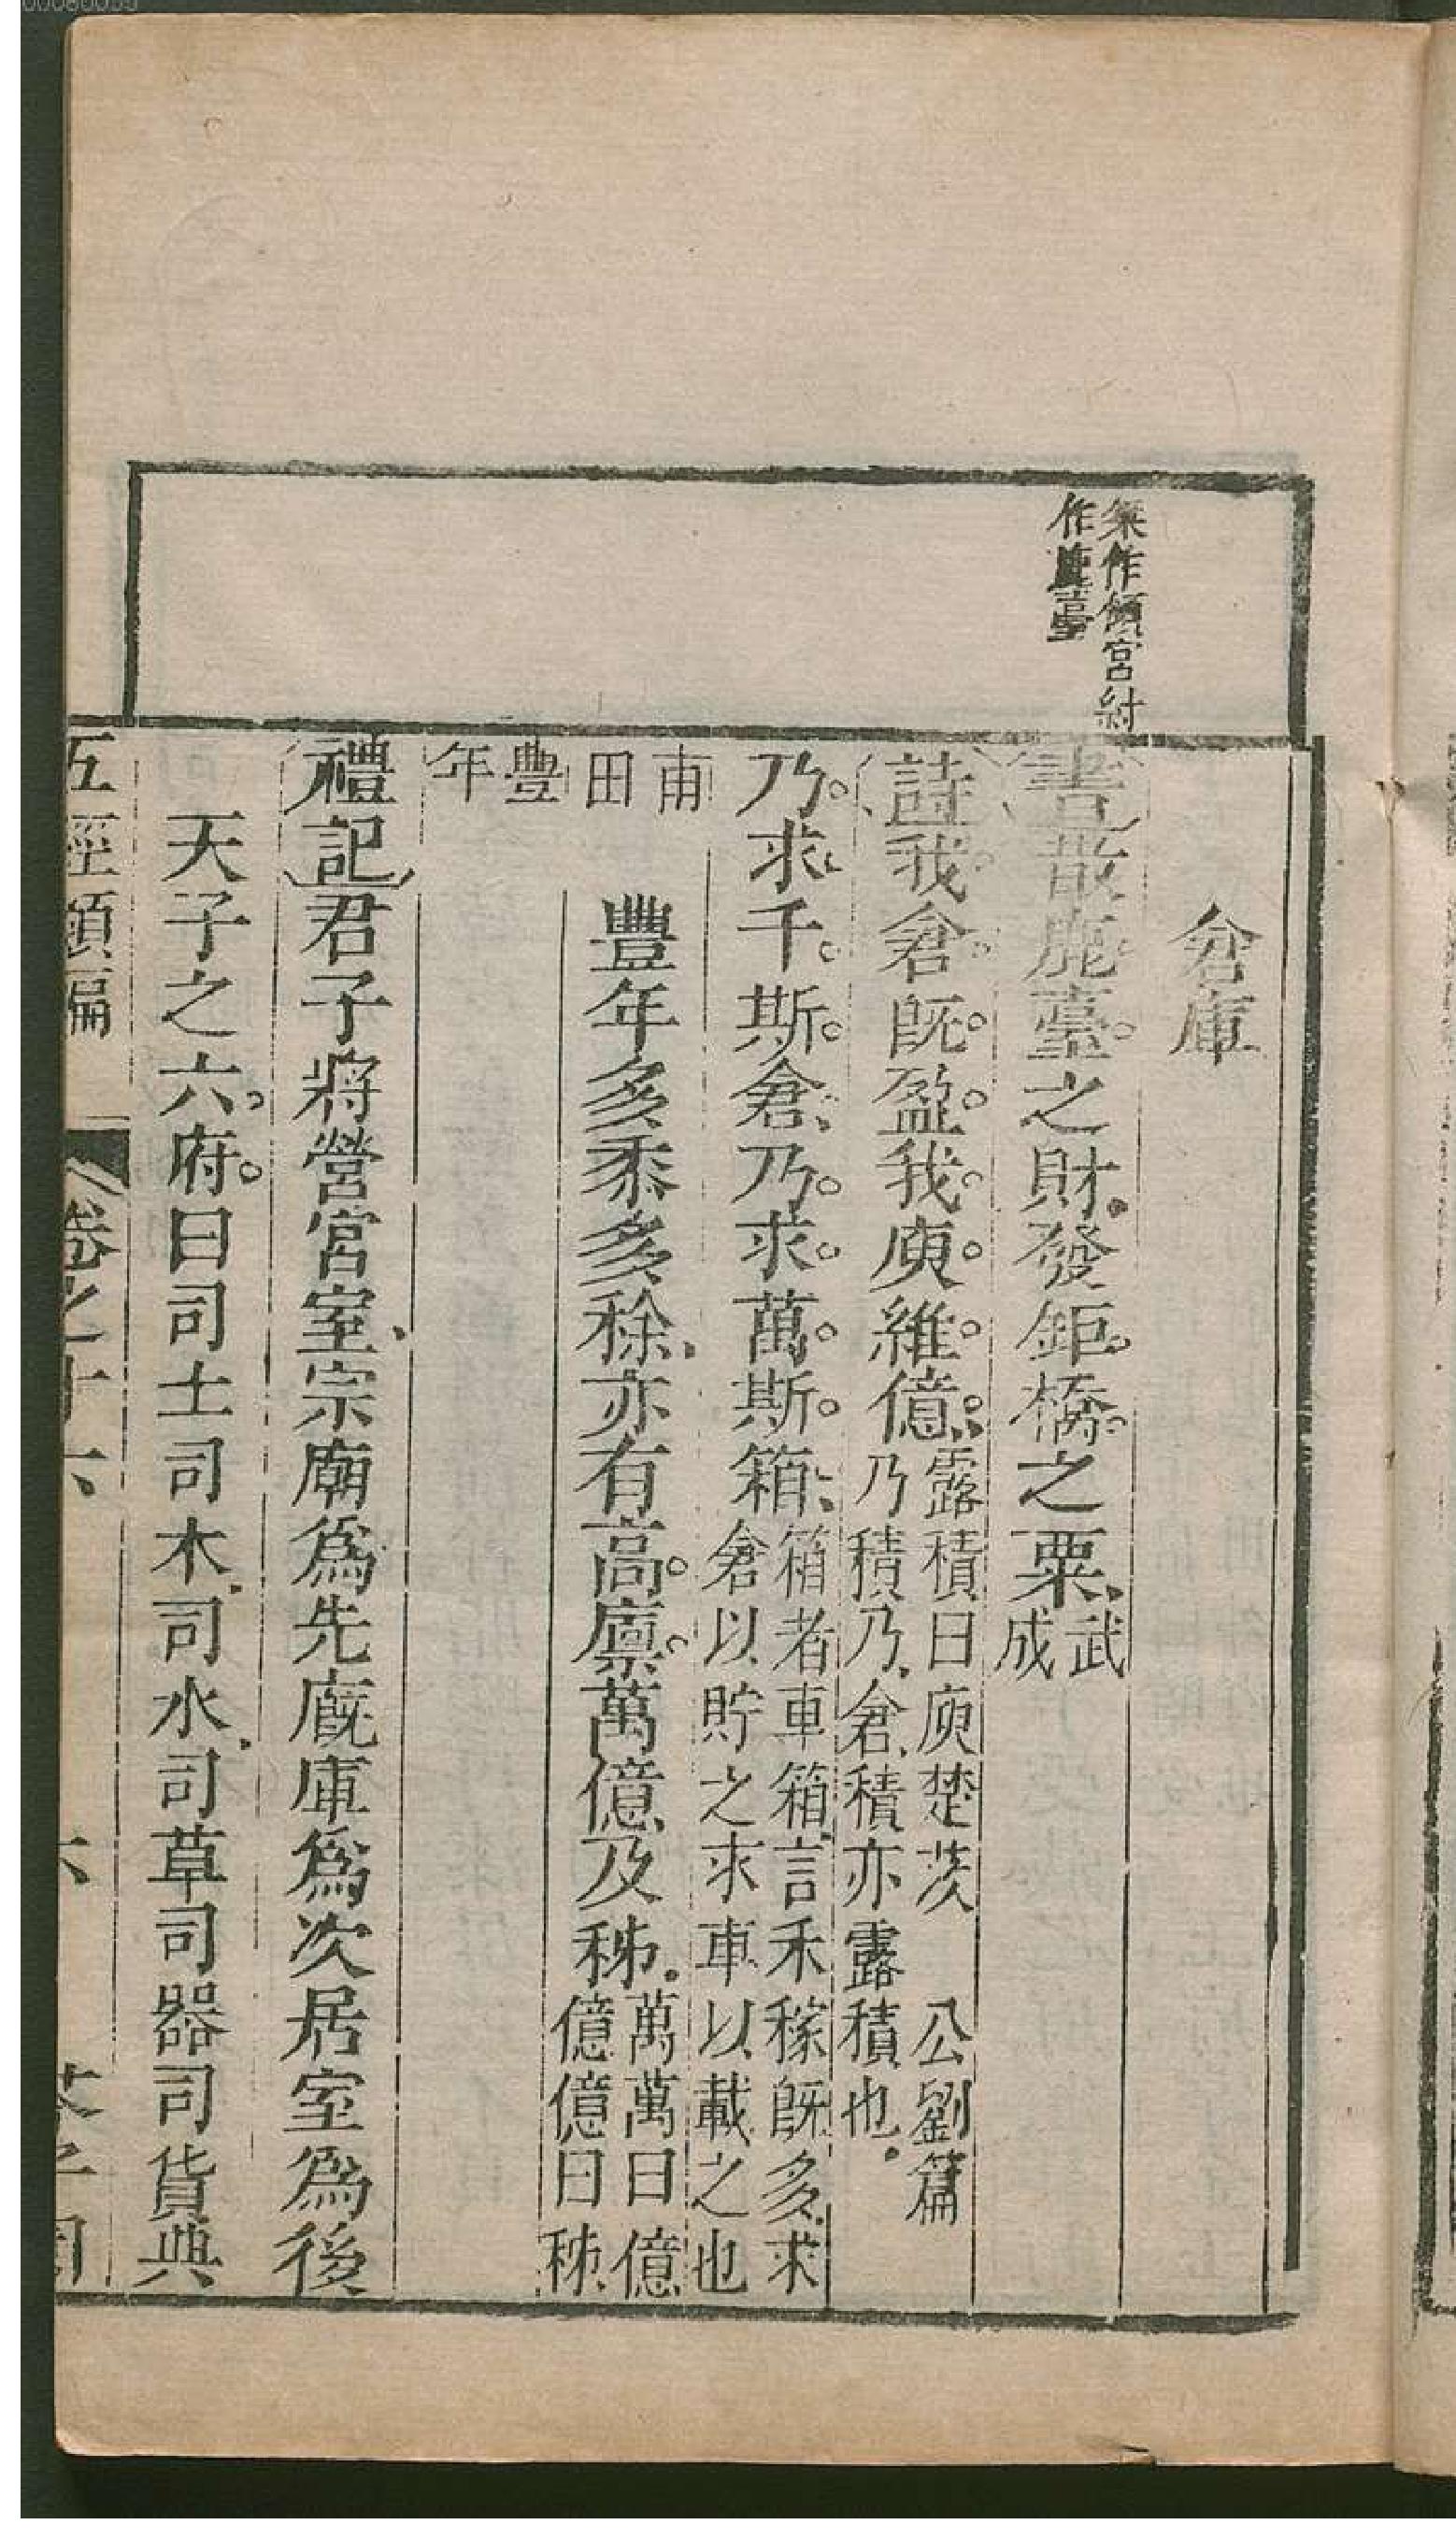 00080055
桀作傾宮紂
作鹿臺
倉庫
書散鹿臺之財發鉅橋之粟武成
詩我倉既盈我庾維億露積曰庾楚茨 公劉篇
乃積乃倉積亦露積也
乃求千斯倉乃求萬斯箱箱者車箱言禾稼既多求
倉以貯之求車以載之也
甫田
豐年多黍多稌亦有高廩萬億及秭萬萬曰億
億億曰秭
豐年
禮記君子將營宮室宗廟爲先廐庫爲次居室爲後
天子之六府曰司土司木司水司草司器司貨典
五經類編 卷之十六 六